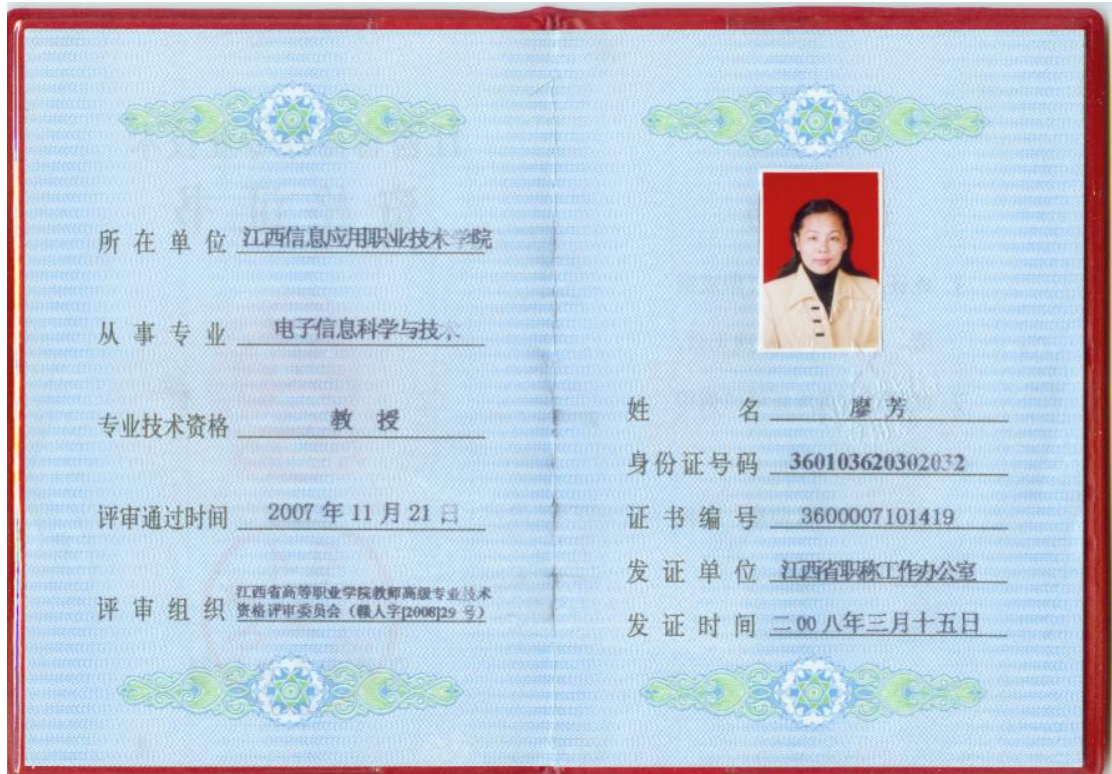 所在单位 江西信息应用职业技术学院
从事专业 电子信息科学与技术
专业技术资格 教 授
评审通过时间 2007 年 11 月 21 日
评审组织 江西省高等职业学院教师高级专业技术
资格评审委员会（赣人字[2008]29 号）
姓 名 廖 芳
身份证号码 360103620302032
证书编号 3600007101419
发证单位 江西省职称工作办公室
发证时间 二00八年三月十五日